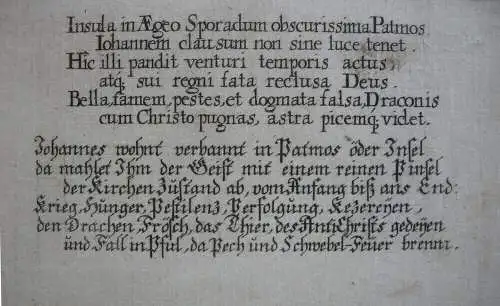 Insula in Ægeo Sporadum obscurissima Patmos
Iohannem clausum non sine luce tenet.
Hic illi pandit venturi temporis actus,
atq; sui regni fata reclusa Deus.
Bella, famem, pestes, et dogmata falsa, Draconis
cum Christo pugnas, astra picemq; videt.
Johannes wohnt verbannt in Patmos öder Insel
da mahlet Ihm der Geist mit einem reinen Pinsel
der Kirchen Zustand ab, vom Anfang biß ans End:
Krieg, Hunger, Pestilenz, Verfolgung, Kezereyen,
den Drachen, Frösch, das Thier, des AntiChrists gedeyen
und Fall in Pful, da Pech und Schwebel-Feuer brennt.